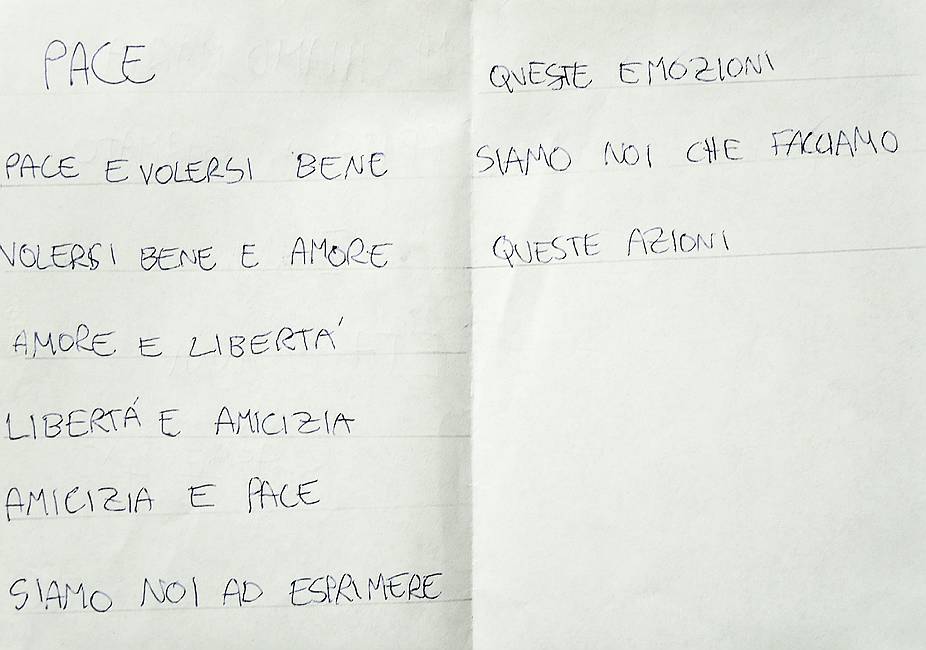 PACE
PACE E VOLERSI BENE
VOLERSI BENE E AMORE
AMORE E LIBERTÁ
LIBERTÁ E AMICIZIA
AMICIZIA E PACE
SIAMO NOI AD ESPRIMERE
QUESTE EMOZIONI
SIAMO NOI CHE FACCIAMO
QUESTE AZIONI